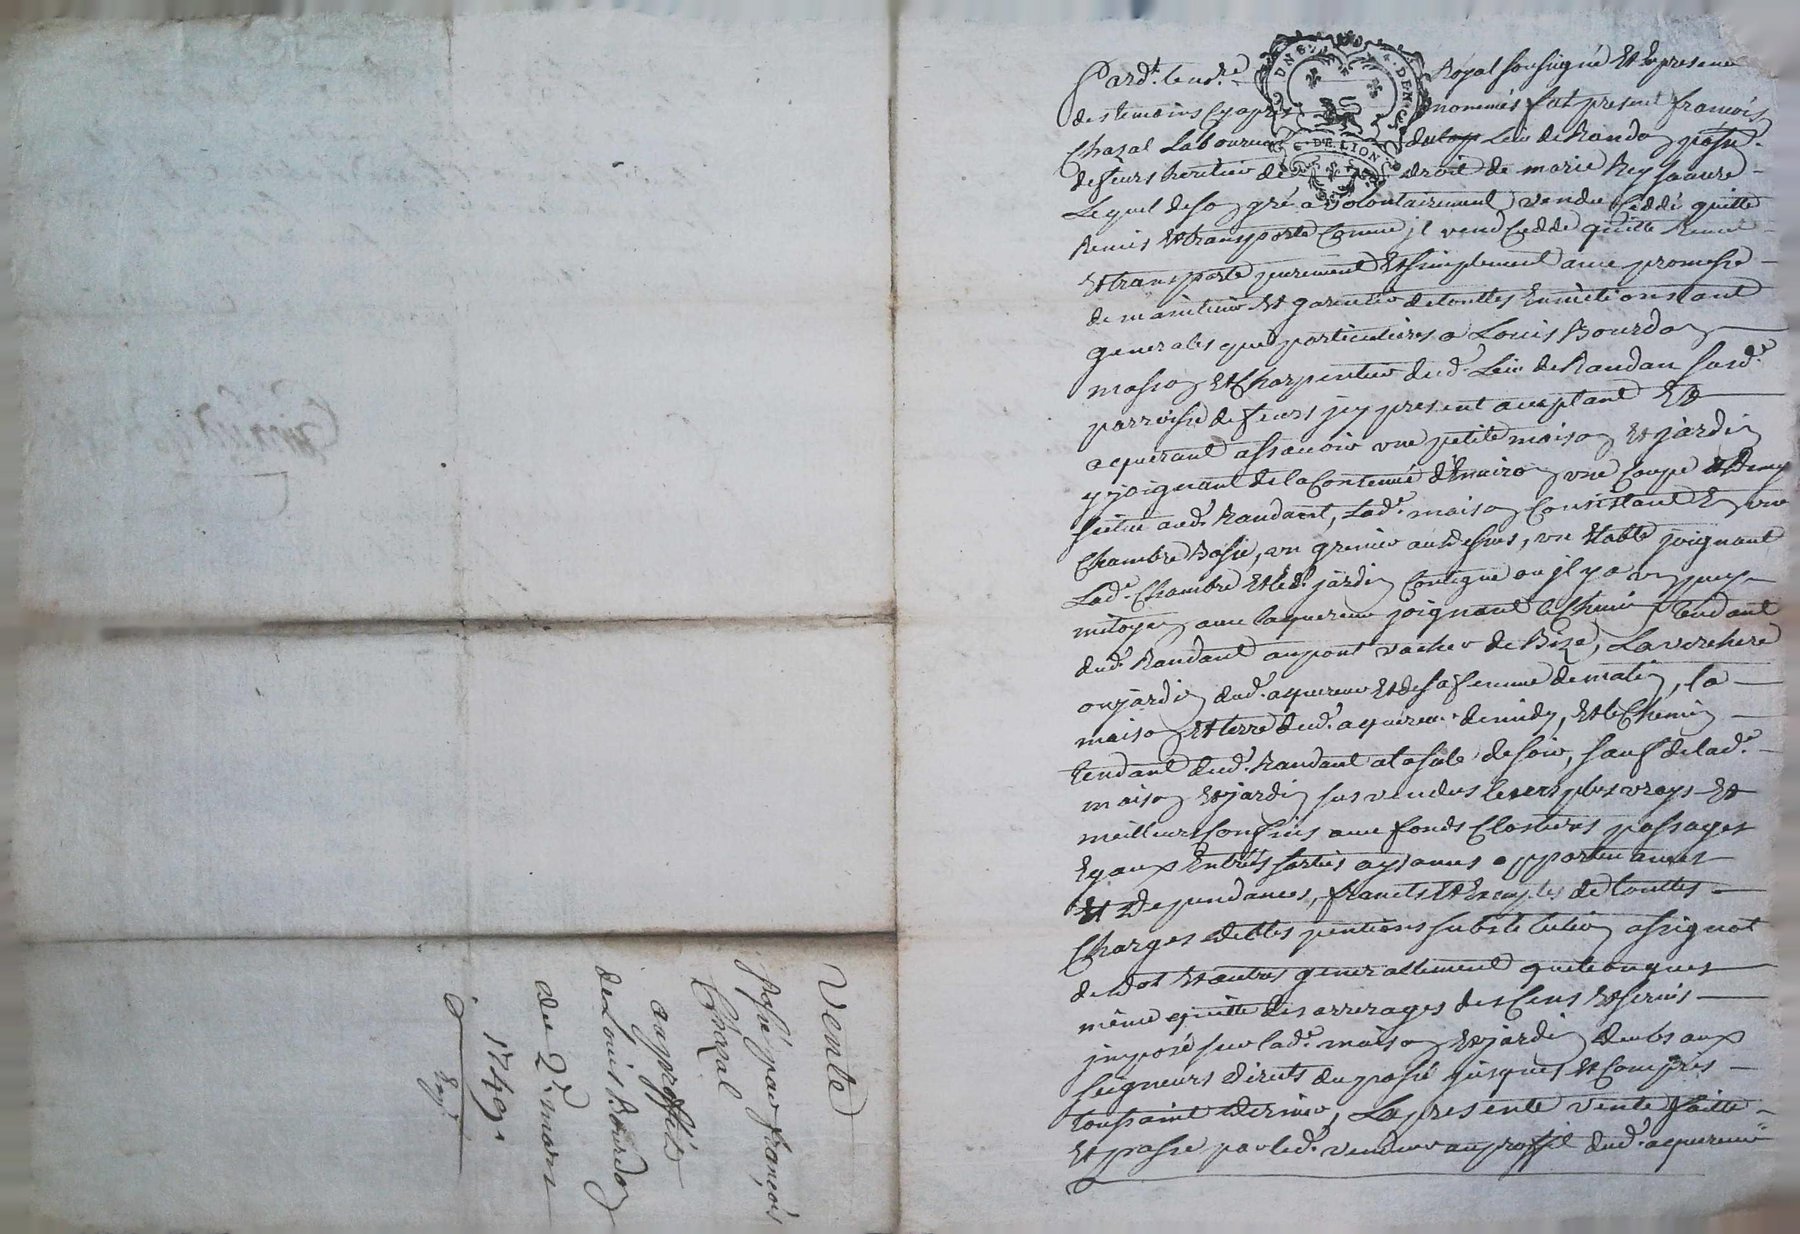 Pard.t le no.re Royal soussigné Et En presence
des temoins Cy apres nommés fut present francois
Chazal Laboureur du lieu de Randan paroisse
de feurs heritier de droit de marie Reyssaure
Lequel de son gré a volontairement vendu Ceddé quitté
Remis Et transporté Comme jl vend Cedde quitte Remet
Et transporte purement Et simplement avec promesse
de maintenir Et garentir de touttes Evictions tant
generales que particulieres a Louis Bourdon
masson Et Charpentier dud. Lieu de Randan susd.e
parroisse de feurs jcy present acceptant Et
acquerant assavoir vne petite maison Et jardin
y joignant de la Contenue d'Environ vne Coupe Et demy
scitué aud. Randant, Lad.e maison Consistant En vne
Chambre Basse, vn grenier audessus, vn Etable joignant
Lad.e Chambre Et led. jardin Contigue ou jl y a vn puy
mitoyen avec laquereur joignant le Chemin Tendant
dud. Randant au pont vacher de Bize, La verchere
ou jardin dud. aquereur Et de sa femme de matin, la
maison Et terre dud. aquereur de midy, Et le Chemin
tendant dud. Randant a la sale de soir, sauf de lad.e
maison Et jardin sus vendus leurs plus vrays Et
meilleurs Confins avec fonds Clostures passages
Egaux Entrées sorties aysances appartenances
Et Dependances, francs Et Exempts de touttes
Charges debtes pentions substitution assignat
de dot Et autres generallement quelconques
même quitte des arrerages des Cens Et servis
jmposé sur lad.e maison Et jardin deubs aux
seigneurs directs du passé jusques Et Compris
toussaint dernier, La presente vente faitte
Et passe par led. vendeur au proffit dud. aquereur
Vente
Passé par francois
Chazal
au proffit
de Louis Bourdon
du 2.e mars
1749.